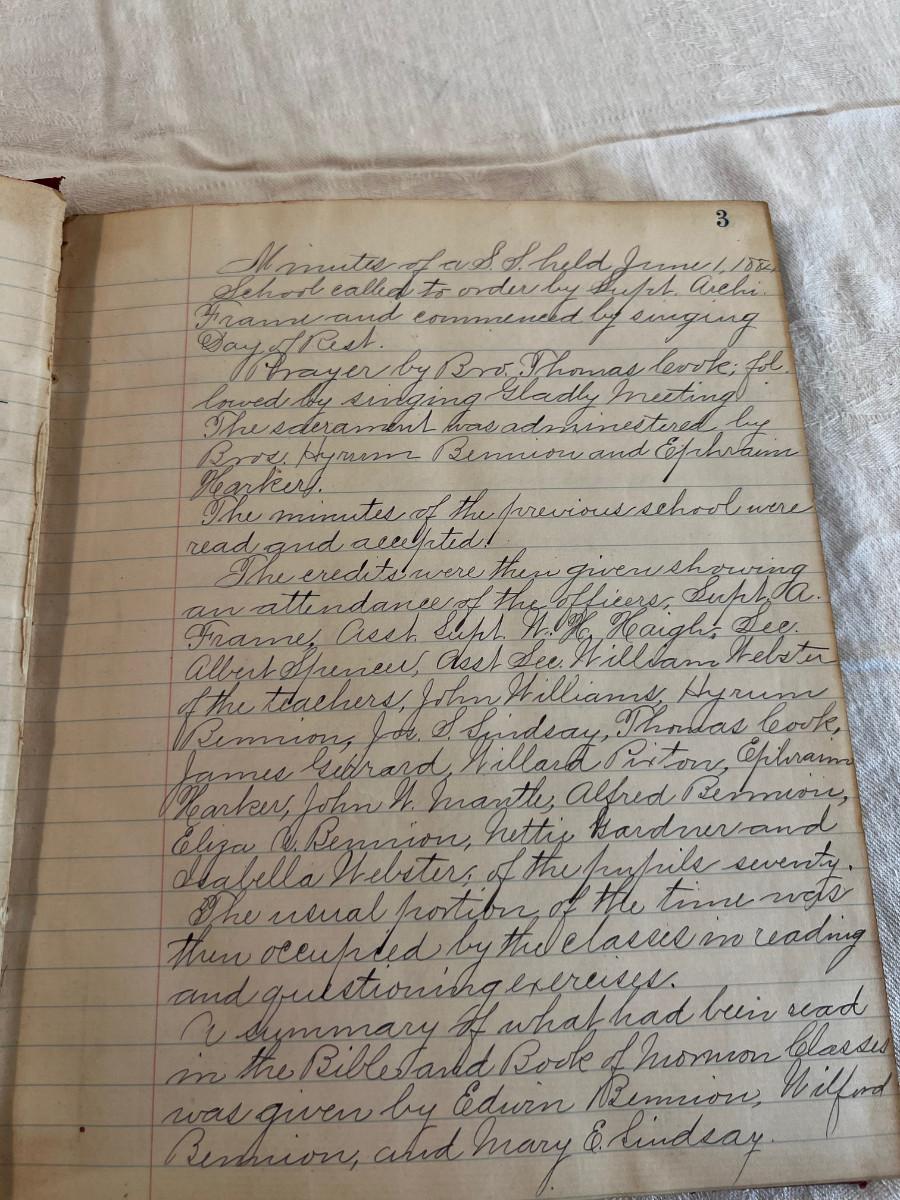 3
Minutes of a S. S. held June 1, 1884
School called to order by Supt. Archi.
Frame and commenced by singing
Day of Rest.
Prayer by Bro. Thomas Cook; fol-
lowed by singing Gladly Meeting
The sacrament was administered by
Bros. Hyrum Bennion and Ephraim
Harker.
The minutes of the previous school were
read and accepted.
The credits were then given showing
an attendance of the officers, Supt. A.
Frame, Asst. Supt. W. H. Haigh; Sec.
Albert Spencer, Asst Sec. William Webster
of the teachers, John Williams, Hyrum
Bennion, Jos. S. Lindsay, Thomas Cook,
James Gerrard, Willard Pixton, Ephraim
Harker, John W. Mantle, Alfred Bennion,
Eliza A. Bennion, Nettie Gardner and
Isabella Webster; of the pupils seventy.
The usual portion of the time was
then occupied by the classes in reading
and questioning exercises.
A summary of what had been read
in the Bible and Book of Mormon Classes
was given by Edwin Bennion, Wilford
Bennion, and Mary E. Lindsay.